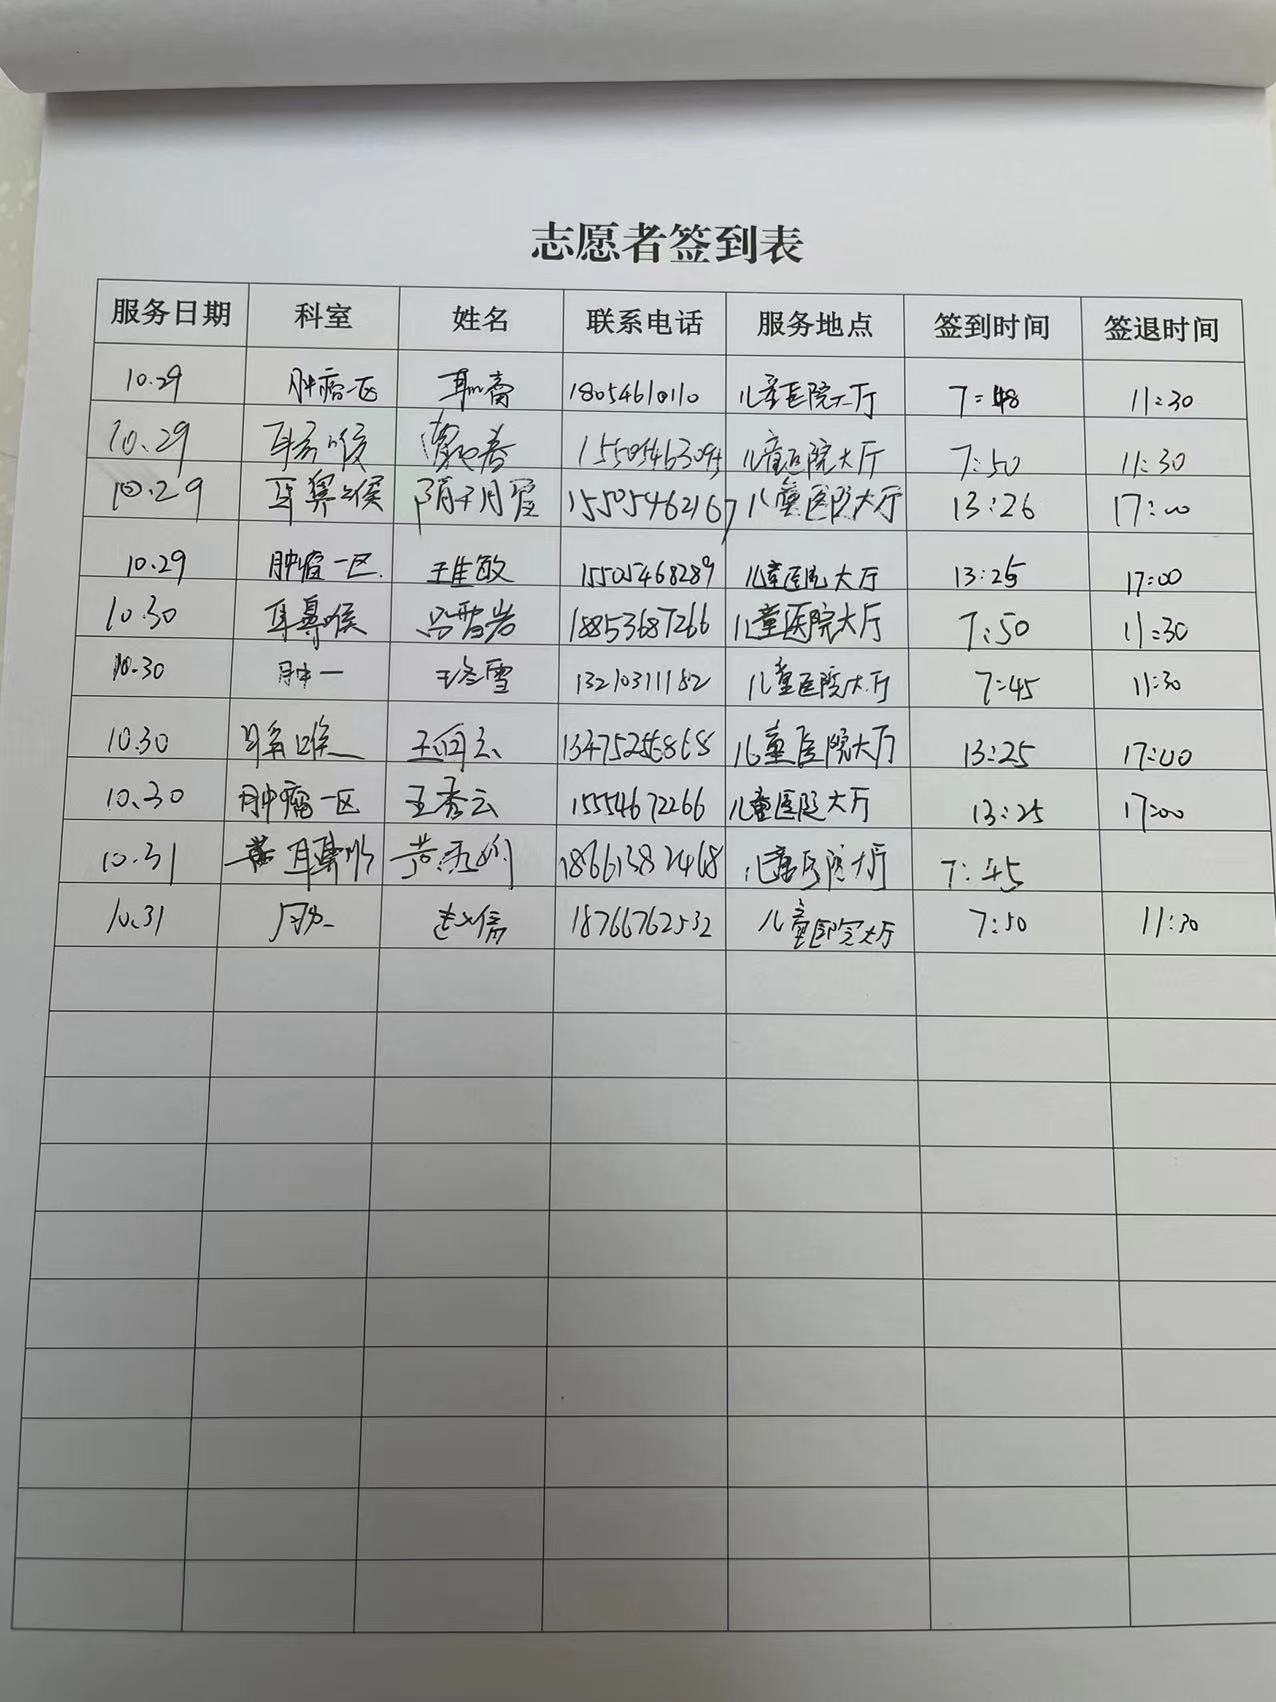 志愿者签到表
服务日期 科室 姓名 联系电话 服务地点 签到时间 签退时间
10.29 肿瘤一区 18054610110 儿童医院大厅 7:48 11:30
10.29 耳鼻喉 儿童医院大厅 7:50 11:30
10.29 耳鼻喉 隋月星 15505462167 儿童医院大厅 13:26 17:00
10.29 肿瘤一区. 王佳敏 15505468289 儿童医院大厅 13:25 17:00
10.30 耳鼻喉 马雪岩 18853687266 儿童医院大厅 7:50 11:30
10.30 肿一 13210311182 儿童医院大厅 7:45 11:30
10.30 耳鼻喉 儿童医院大厅 13:25 17:00
10.30 肿瘤一区 王秀云 15554672266 儿童医院大厅 13:25 17:00
10.31 耳鼻喉 18661382468 儿童医院大厅 7:45
10.31 18766762532 儿童医院大厅 7:50 11:30